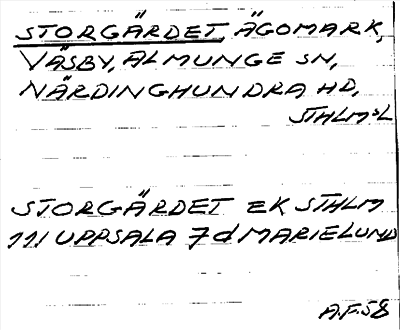 STORGÄRDET, ÄGOMARK,
VÄSBY, ALMUNGE SN,
NÄRDINGHUNDRA HD,
STHLMSL
STORGÄRDET EK STHLM
111 UPPSALA 7d MARIELUND
A.F. 58